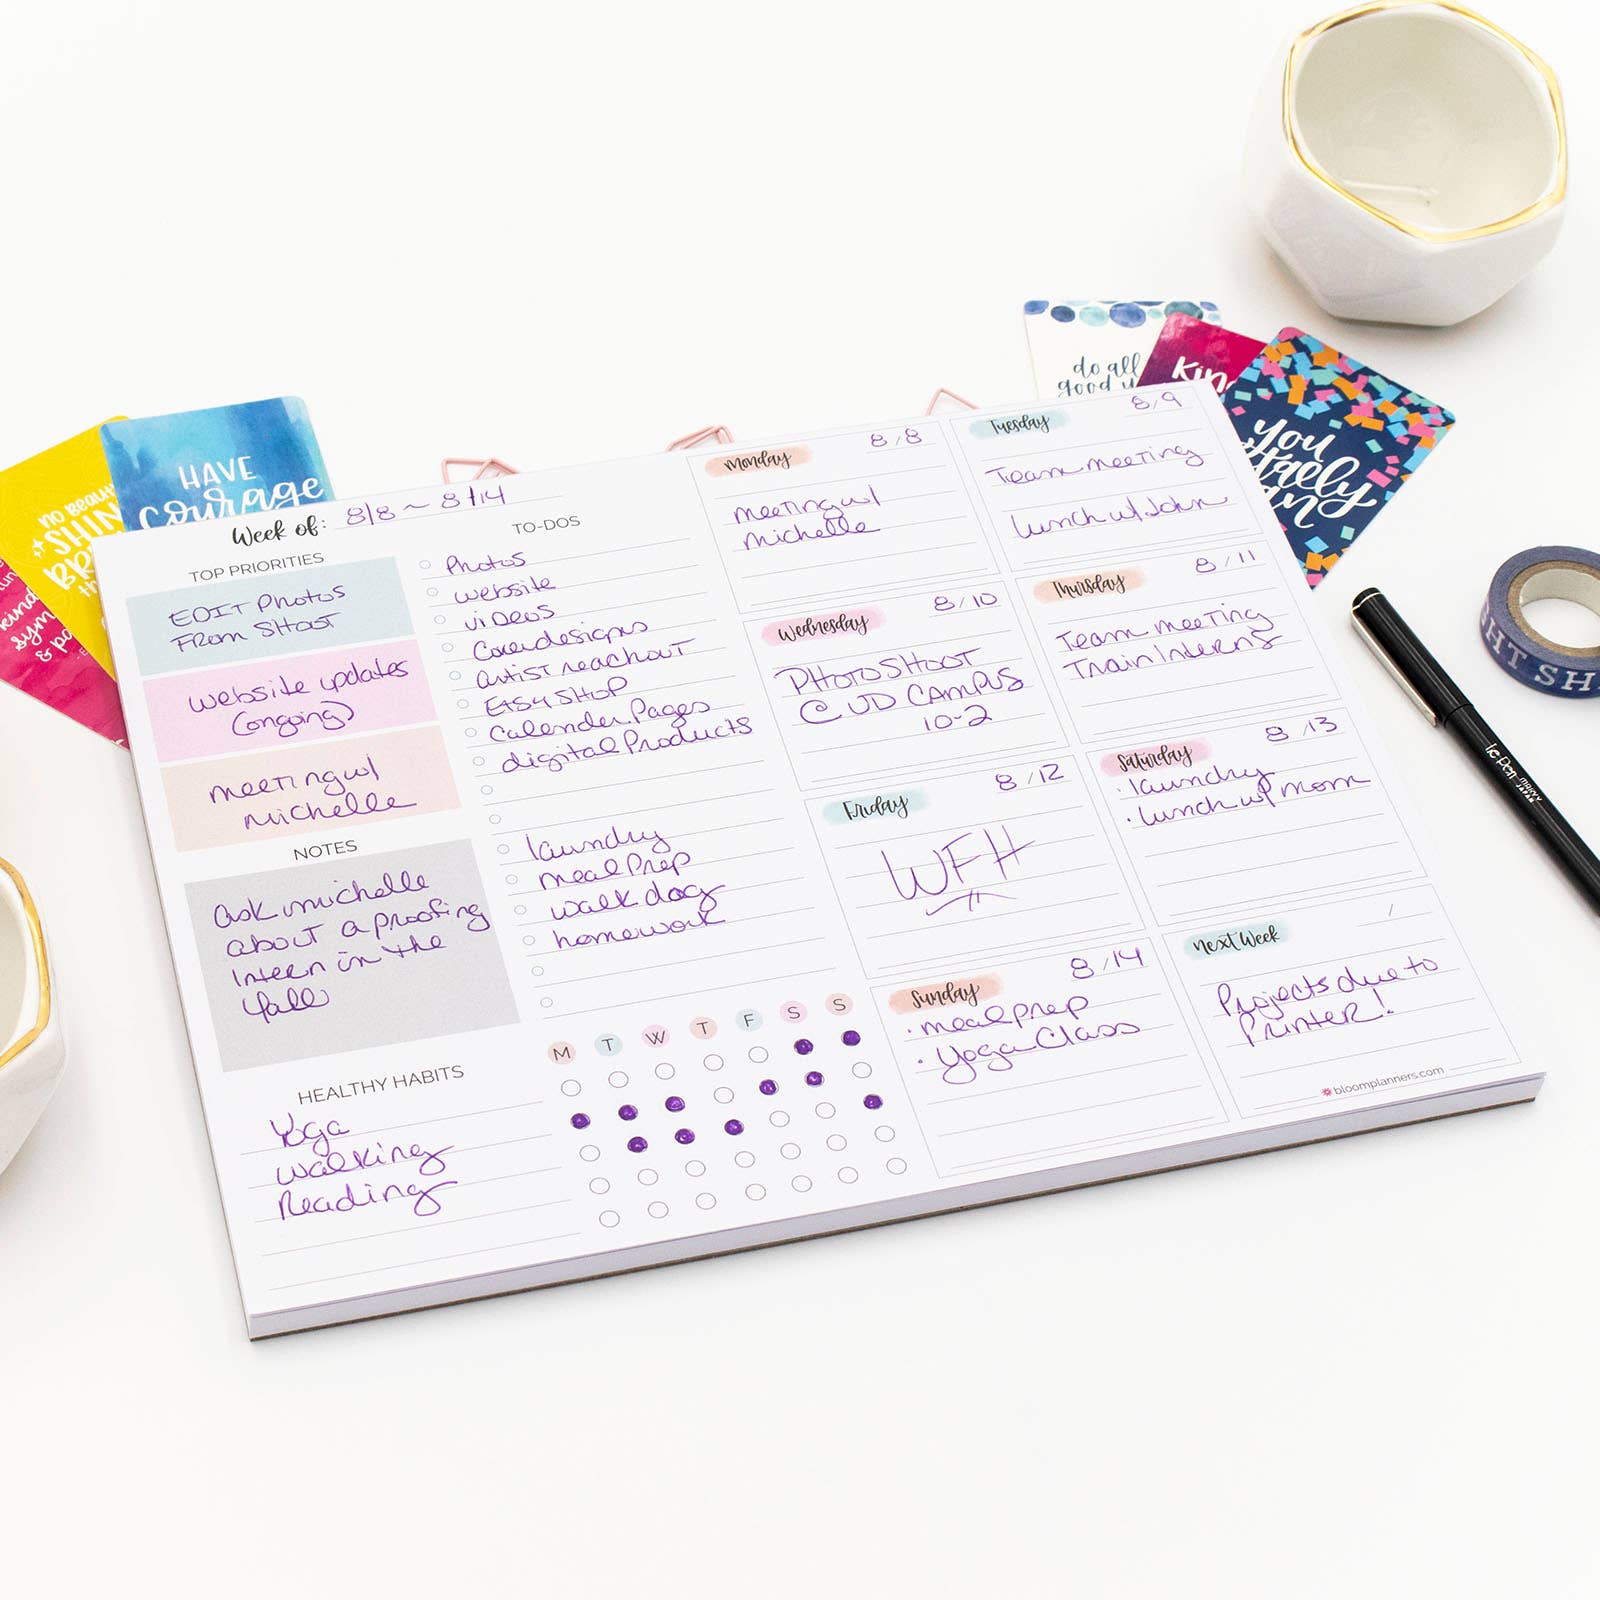 Week of: 8/8 ~ 8/14
TOP PRIORITIES
EDIT Photos
From SHOOT
website updates
(ongoing)
meeting w/
michelle
NOTES
ask michelle
about a proofing
Intern in the
fall
HEALTHY HABITS
Yoga
walking
Reading
M T W T F S S
TO-DOS
Photos
website
videos
Cover designs
artist reachout
Etsy SHOP
Calender Pages
digital Products
laundry
meal Prep
walk dog
homework
Monday 8/8
meeting w/
michelle
Tuesday 8/9
Team meeting
lunch w/ John
Wednesday 8/10
PHOTOSHOOT
@ UD CAMPUS
10-2
Thursday 8/11
Team meeting
Train Interns
Friday 8/12
WFH
Saturday 8/13
· laundry
· lunch w/ mom
Sunday 8/14
· meal prep
· Yoga Class
Next Week /
Projects due to
Printer!
bloomplanners.com
HAVE
courage
NO BEAUTY
SHIN
BR
th
kind
sym
& po
do all
good
Kin
you
totally
can
Le Pen MARVY JAPAN
SHT SH